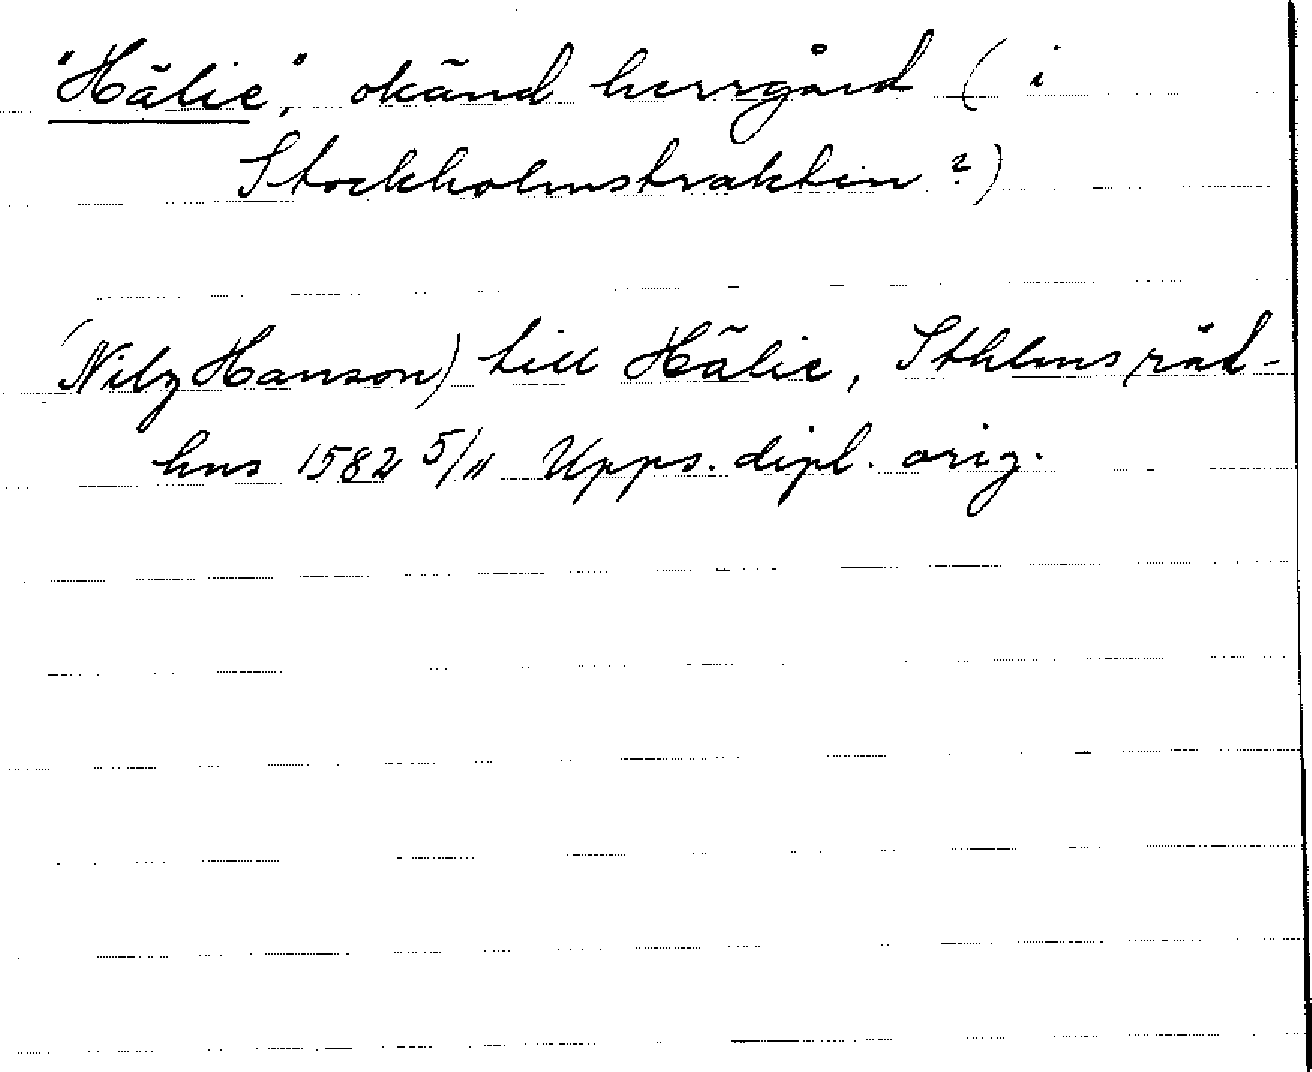 "Hälie", okänd herrgård (i
Stockholmstrakten?)
(Nilz Hanson) till Hälie, Sthlms råd-
hus 1582 5/11 Upps. dipl. orig.